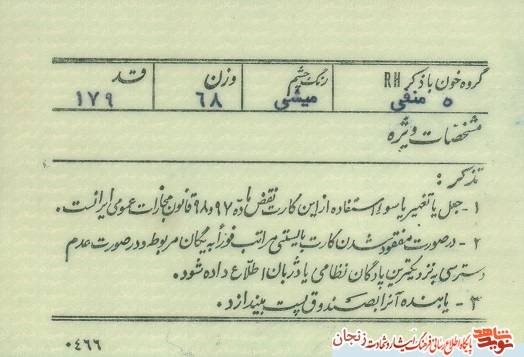 گروه خون با ذکر RH رنگ چشم وزن قد
o منفی میشی ۶۸ ۱۷۹
مشخصات ویژه
تذکر :
۱- جعل یا تغییر یا سوء استفاده از این کارت نقض ماده ۹۷ و ۹۸ قانون مجازات عمومی ایرانست .
۲- در صورت مفقود شدن کارت بایستی مراتب فوراً به یگان مربوط و در صورت عدم
دسترسی به نزدیکترین پادگان نظامی یا ژاندارمری اطلاع داده شود .
۳- یابنده آنرا بصندوق پست بیندازد .
۰۴۶۶
نوید شاهد
پایگاه اطلاع رسانی فرهنگ ایثار و شهادت زنجان